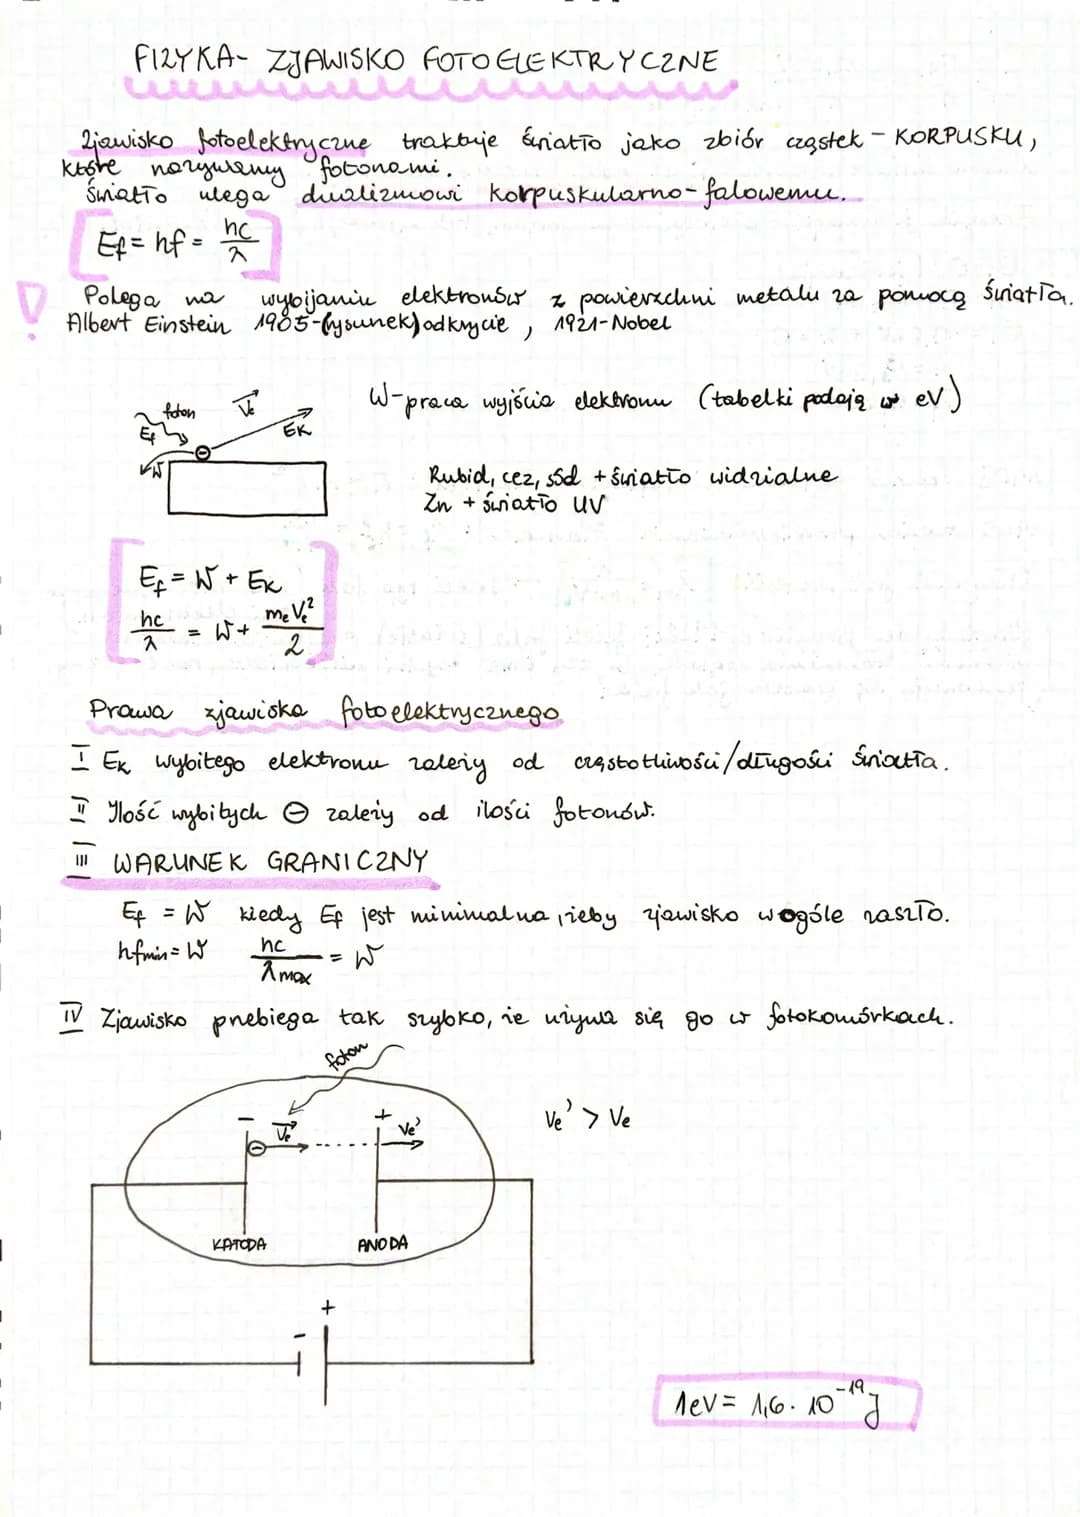 FIZYKA- ZJAWISKO FOTOELEKTRYCZNE
Zjawisko fotoelektryczne traktuje światło jako zbiór cząstek - KORPUSKU,
które nazywamy fotonami.
Światło ulega dualizmowi korpuskularno-falowemu.
Ef = hf = hc/λ
! Polega na wybijaniu elektronów z powierzchni metalu za pomocą światła.
Albert Einstein 1905-(rysunek) odkrycie, 1921-Nobel
W-praca wyjścia elektronu (tabelki podają w eV)
foton Ve
Ef EK
W
Rubid, cez, sód + światło widzialne
Zn + światło UV
Ef = W + EK
hc/λ = W + meVe²/2
Prawa zjawiska fotoelektrycznego
I EK wybitego elektronu zależy od częstotliwości/długości światła.
II Ilość wybitych ⊖ zależy od ilości fotonów.
III WARUNEK GRANICZNY
Ef = W kiedy Ef jest minimalna, żeby zjawisko wogóle zaszło.
hfmin = W hc/λmax = W
IV Zjawisko przebiega tak szybko, że używa się go w fotokomórkach.
foton
- Ve + Ve'
Ve' > Ve
KATODA ANODA
- +
1eV = 1,6 · 10⁻¹⁹ J